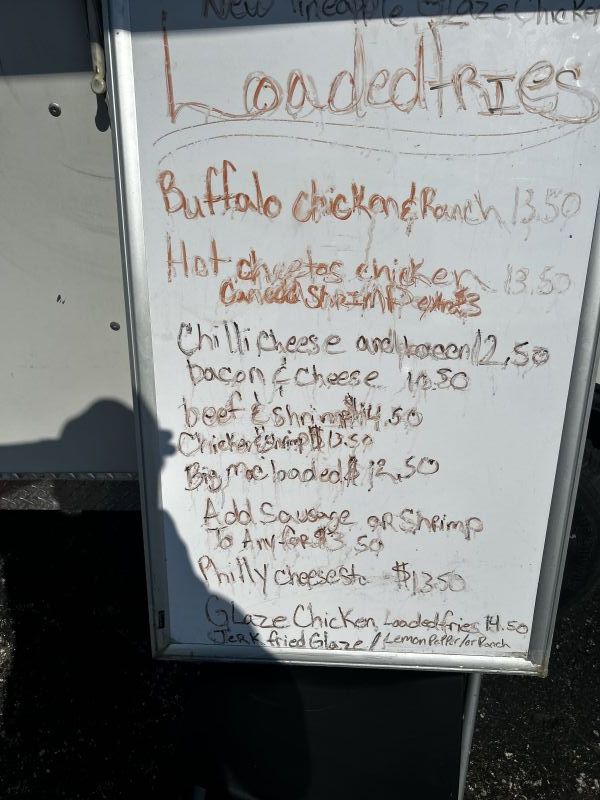 New Pineapple Glaze Chicken
Loaded FRIes
Buffalo chicken & Ranch 13.50
Hot cheetos chicken 13.50
Can add ShRIMP extra $3
Chilli cheese and bacon 12.50
bacon & cheese 10.50
beef & shrimp $14.50
Chicken & shrimp $13.50
Big mac loaded $12.50
Add Sausage OR Shrimp
To Any for $3.50
Philly cheesest $13.50
GLaze Chicken Loaded fries 14.50
JeRK fried Glaze / Lemon PePPer/or Ranch